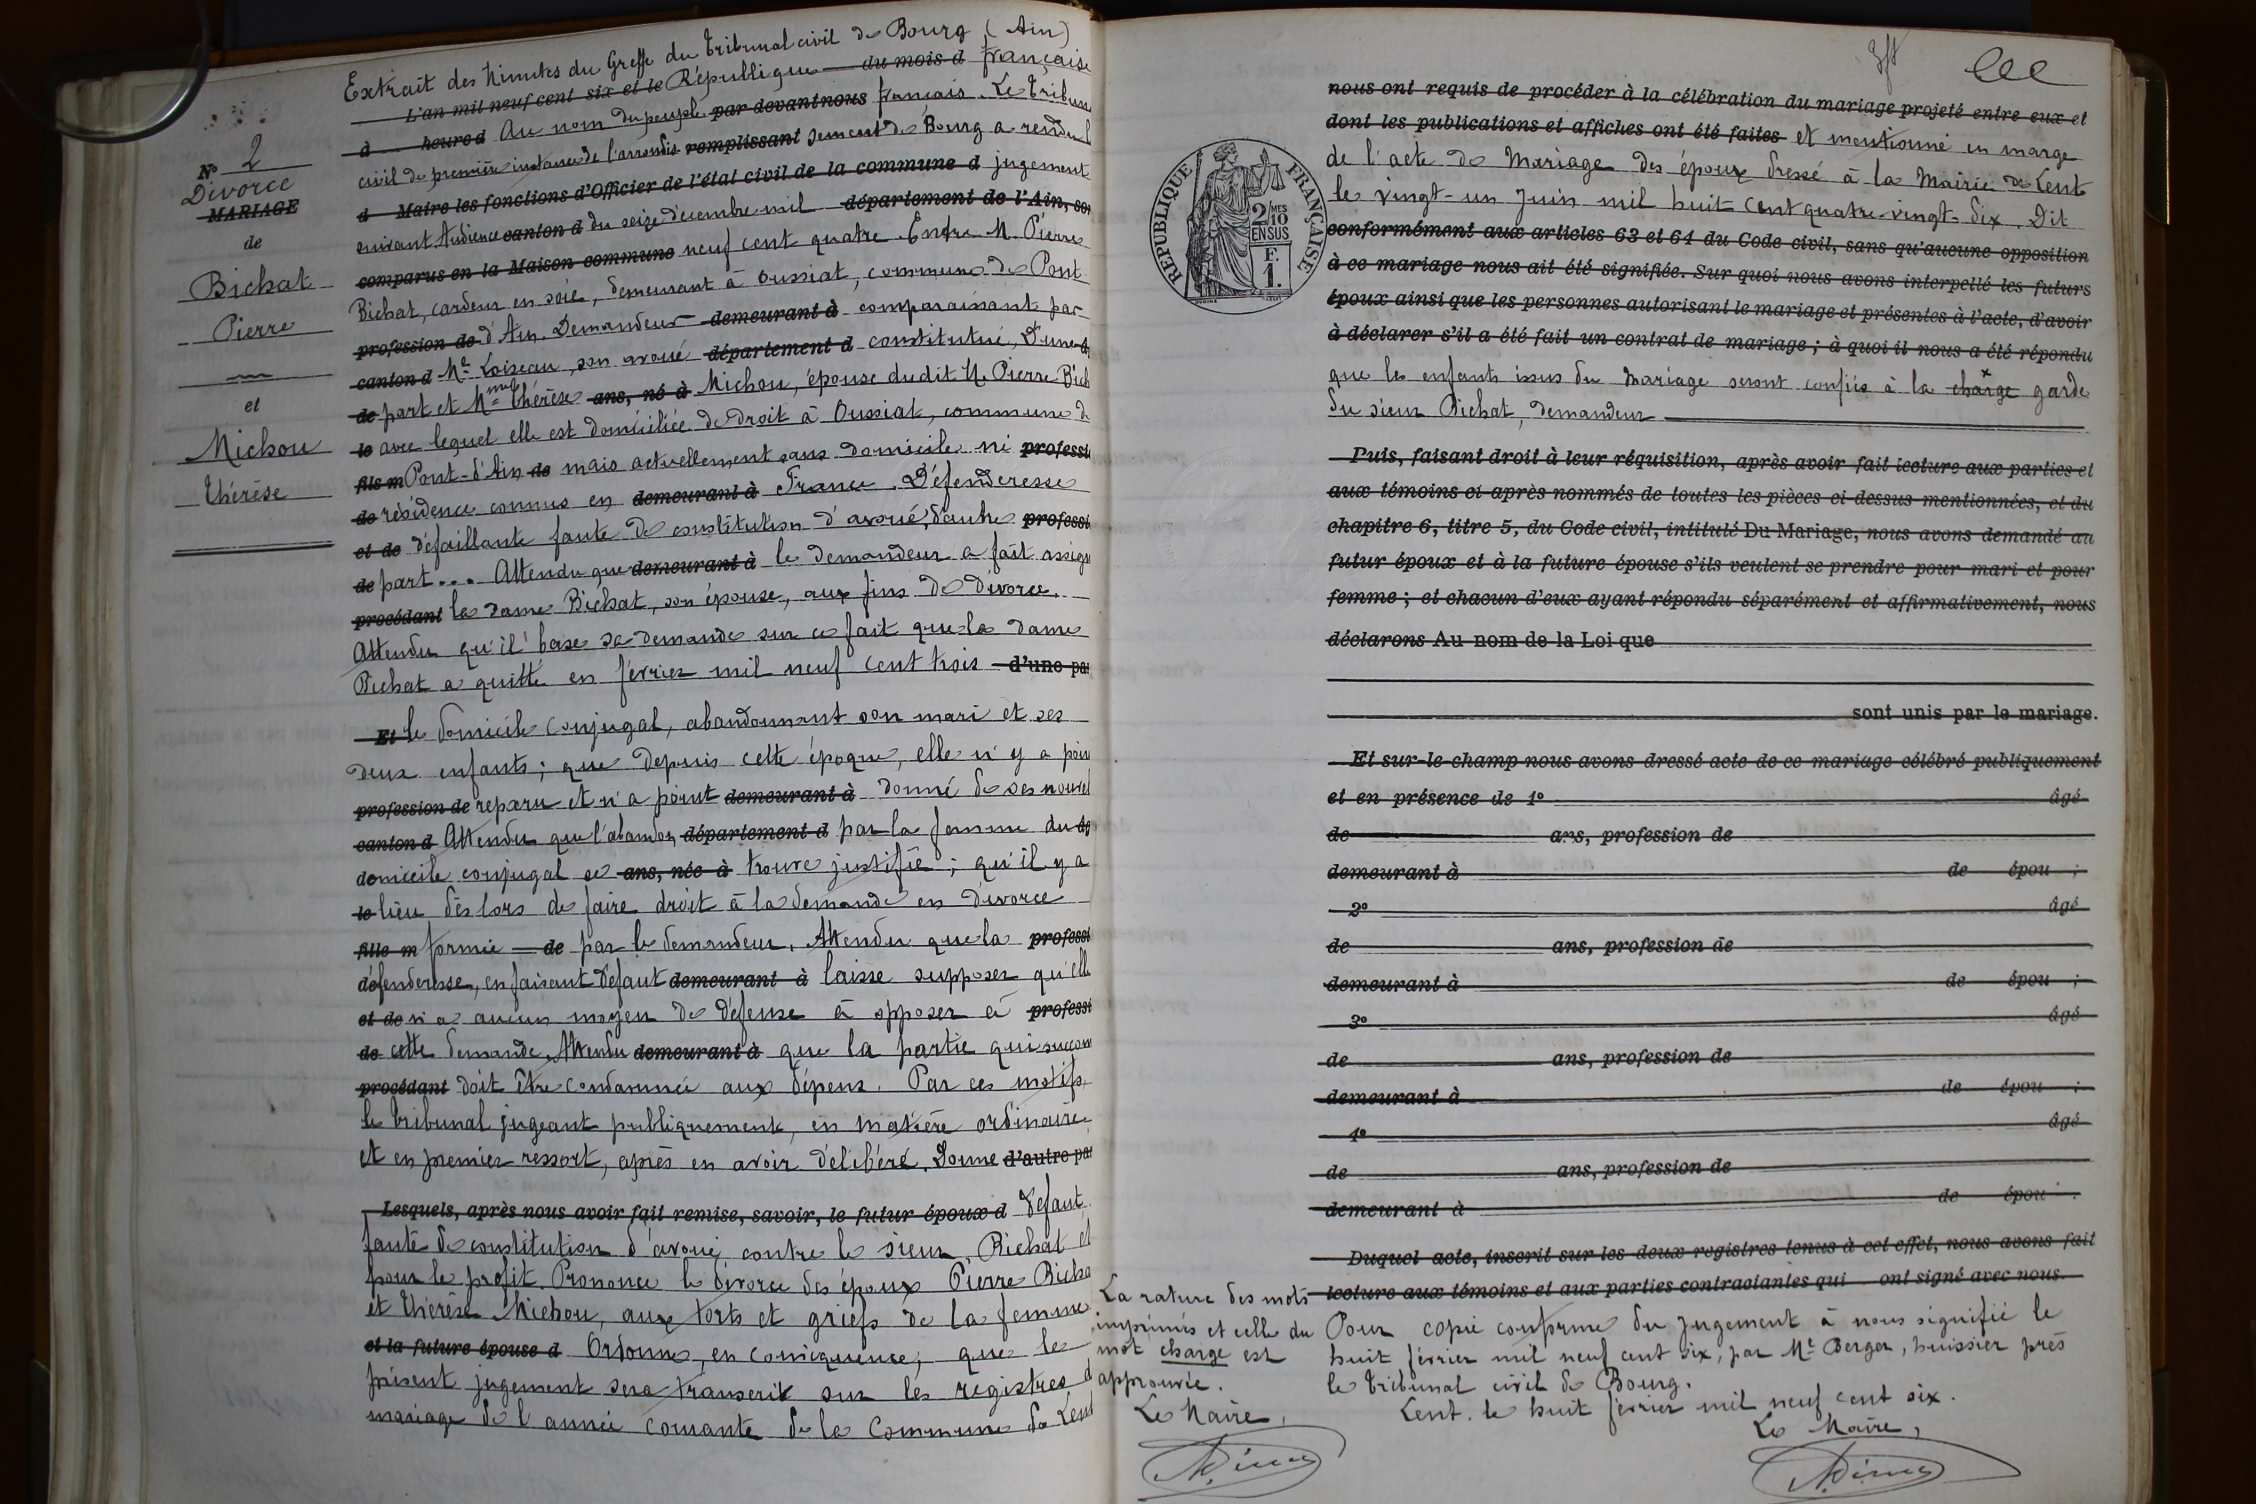 Extrait des Minutes du Greffe du Tribunal civil de Bourg (Ain)
L'an mil neuf cent six et le République du mois d française
à heure d Au nom du peuple par devant nous français. Le Tribun
civil de première instance de l'arrondis remplissant sement de Bourg a rendu l
d Maire les fonctions d'Officier de l'état civil de la commune d jugement
suivant Audience canton d du seize décembre mil département de l'Ain, son
comparus en la Maison commune neuf cent quatre. Entre M. Pierre
Bichat, cardeur en soie, demeurant à Oussiat, commune de Pont
profession de d'Ain. Demandeur demeurant à comparaissant par
canton d Me Loiseau, son avoué département d constitué, D'une d
de part et Mme Thérèse ans, né à Michou, épouse dudit M. Pierre Bich
le avec lequel elle est domiciliée de droit à Oussiat, commune de
fils m Pont-d'Ain de mais actuellement sans domicile ni professi
de résidence connus en demeurant à France. Défenderesse
et de défaillante faute de constitution d'avoué, d'autre professi
de part... Attendu que demeurant à le demandeur a fait assign
procédant la dame Bichat, son épouse, aux fins de divorce.
Attendu qu'il base sa demande sur ce fait que la dame
Bichat a quitté en février mil neuf cent trois d'une pa
Et le domicile conjugal, abandonnant son mari et ses
deux enfants; que depuis cette époque, elle n'y a poin
profession de reparu et n'a point demeurant à donné de ses nouvel
canton d Attendu que l'abandon département d par la femme du d
domicile conjugal se ans, née à trouve justifié; qu'il y a
le lieu dès lors de faire droit à la demande en divorce
fille m formée de par le demandeur. Attendu que la professi
défenderesse, en faisant défaut demeurant à laisse supposer qu'elle
et de n'a aucun moyen de défense à opposer à professi
de cette demande. Attendu demeurant à que la partie qui succom
procédant doit être condamnée aux dépens. Par ces motifs
le tribunal jugeant publiquement, en matière ordinaire
et en premier ressort, après en avoir délibéré. Donne d'autre pa
Lesquels, après nous avoir fait remise, savoir, le futur époux d Défaut
faute de constitution d'avoué contre le sieur Bichat et
pour le profit. Prononce le divorce des époux Pierre Bicha
et Thérèse Michou, aux torts et griefs de la femme
et la future épouse d Ordonne, en conséquence, que le
présent jugement sera transcrit sur les registres d
mariage de l'année courante de la Commune de Lent
No 2
Divorce
MARIAGE
de
Bichat
Pierre
et
Michou
Thérèse
RÉPUBLIQUE FRANÇAISE
2/10 MES
EN SUS
F.
1.
nous ont requis de procéder à la célébration du mariage projeté entre eux et
dont les publications et affiches ont été faites et mentionné en marge
de l'acte de Mariage des époux dressé à la Mairie de Lent
le vingt-un Juin mil huit cent quatre-vingt-dix. Dit
conformément aux articles 63 et 64 du Code civil, sans qu'aucune opposition
à ce mariage nous ait été signifiée. Sur quoi nous avons interpellé les futurs
époux ainsi que les personnes autorisant le mariage et présentes à l'acte, d'avoir
à déclarer s'il a été fait un contrat de mariage; à quoi il nous a été répondu
que les enfants issus du mariage seront confiés à la charge garde
du sieur Bichat, demandeur
Puis, faisant droit à leur réquisition, après avoir fait lecture aux parties et
aux témoins ci après nommés de toutes les pièces ci dessus mentionnées, et du
chapitre 6, titre 5, du Code civil, intitulé Du Mariage, nous avons demandé au
futur époux et à la future épouse s'ils veulent se prendre pour mari et pour
femme; et chacun d'eux ayant répondu séparément et affirmativement, nous
déclarons Au nom de la Loi que
sont unis par le mariage.
Et sur-le-champ nous avons dressé acte de ce mariage célébré publiquement
et en présence de 1° âgé
de ans, profession de
demeurant à de épou ;
2° âgé
de ans, profession de
demeurant à de épou ;
3° âgé
de ans, profession de
demeurant à de épou ;
4° âgé
de ans, profession de
demeurant à de épou .
Duquel acte, inscrit sur les deux registres tenus à cet effet, nous avons fait
lecture aux témoins et aux parties contractantes qui ont signé avec nous.
Pour copie conforme du jugement à nous signifié le
huit février mil neuf cent six, par Me Berger, huissier près
le Tribunal civil de Bourg.
Lent, le huit février mil neuf cent six.
Le Maire,
La rature des mots
imprimés et celle du
mot charge est
approuvée.
Le Maire,